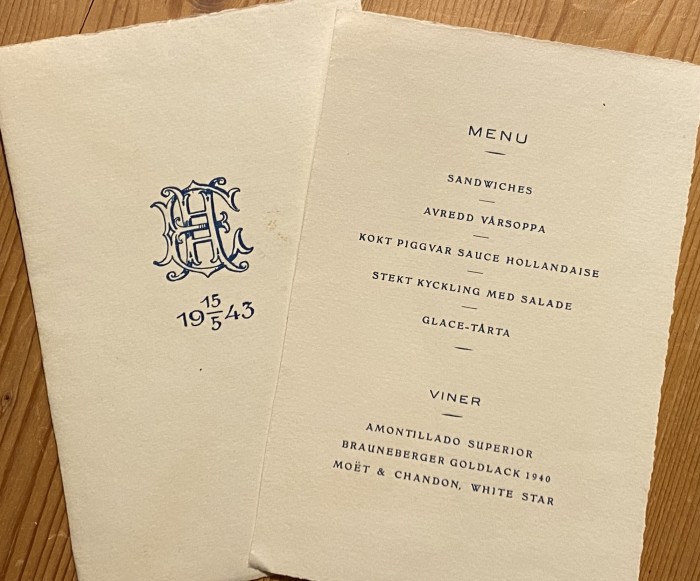 19 15/5 43
MENU
SANDWICHES
AVREDD VÅRSOPPA
KOKT PIGGVAR SAUCE HOLLANDAISE
STEKT KYCKLING MED SALADE
GLACE-TÅRTA
VINER
AMONTILLADO SUPERIOR
BRAUNEBERGER GOLDLACK 1940
MOËT & CHANDON, WHITE STAR